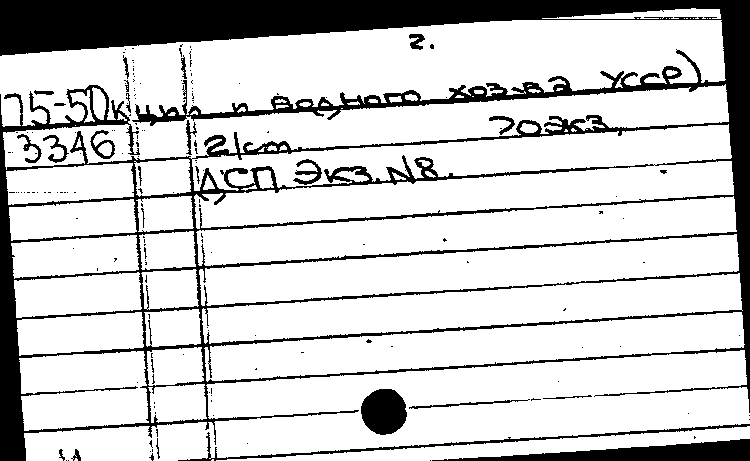 2.
75-50кции и водного хоз-ва УССР).
3346 21cm. 70экз.
ДСП. Экз. N8.